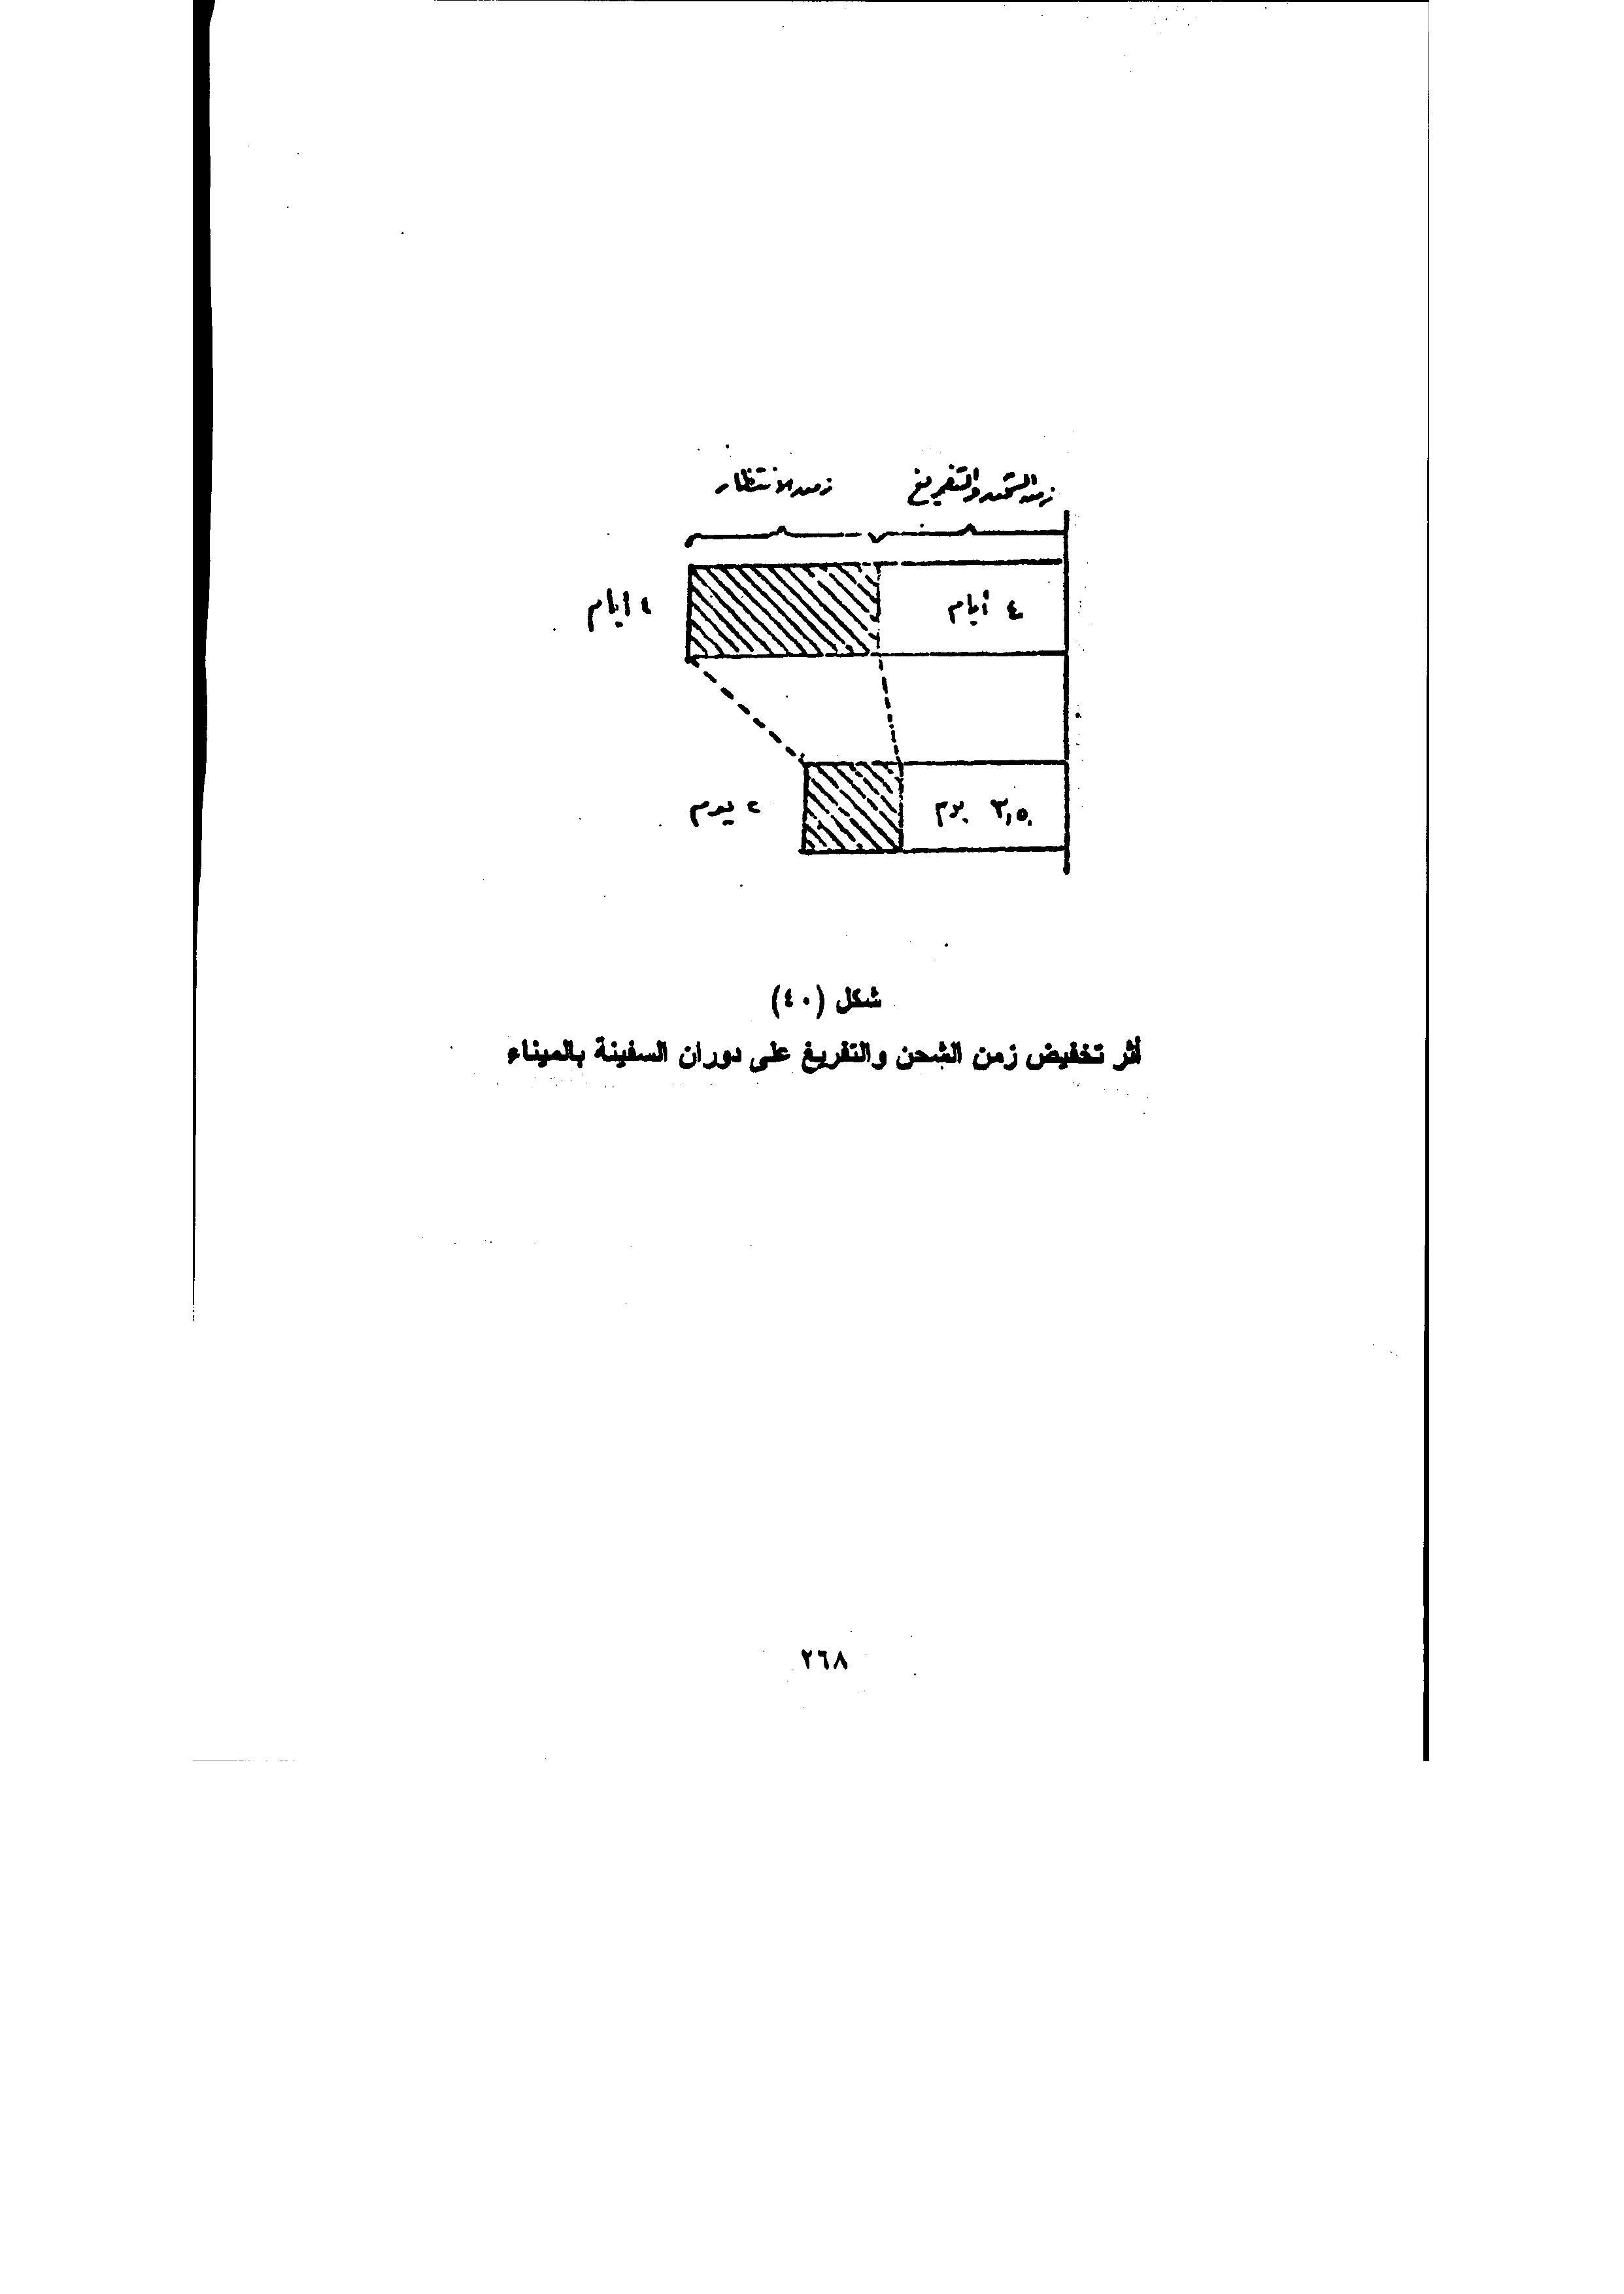 زمن الشحن والتفريغ زمن الانتظار
٤ أيام ٤ ايام
٣,٥٠ يوم ٢ يوم
شكل (٤٠)
أثر تخفيض زمن الشحن والتفريغ على دوران السفينة بالميناء
٢٦٨